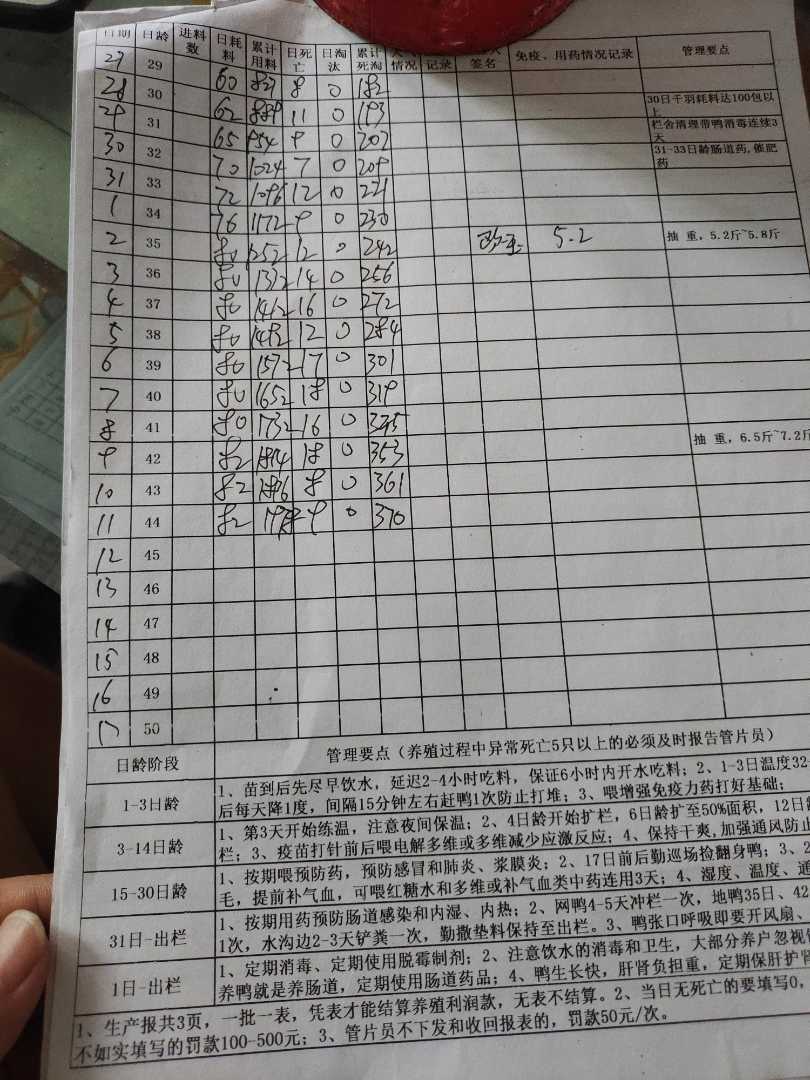 日期 日龄 进料数 日耗料 累计用料 日死亡 日淘汰 累计死淘 情况 记录 签名 免疫、用药情况记录 管理要点
27 29 60 827 8 0 182
28 30 62 889 11 0 193 30日千羽耗料达100包以上
29 31 65 954 9 0 202 栏舍清理带鸭消毒连续3天
30 32 70 1024 7 0 209 31-33日龄肠道药,催肥药
31 33 72 1096 12 0 221
1 34 76 1172 9 0 230
2 35 80 1252 12 0 242 5.2 抽 重，5.2斤~5.8斤
3 36 80 1332 14 0 256
4 37 80 1412 16 0 272
5 38 80 1492 12 0 284
6 39 80 1572 17 0 301
7 40 80 1652 18 0 319
8 41 80 1732 16 0 335
9 42 82 1814 18 0 353 抽 重，6.5斤~7.2斤
10 43 82 1896 8 0 361
11 44 82 1978 9 0 370
12 45
13 46
14 47
15 48
16 49
17 50
日龄阶段 管理要点（养殖过程中异常死亡5只以上的必须及时报告管片员）
1-3日龄 1、苗到后先尽早饮水，延迟2-4小时吃料，保证6小时内开水吃料；2、1-3日温度32-
后每天降1度，间隔15分钟左右赶鸭1次防止打堆；3、喂增强免疫力药打好基础；
3-14日龄 1、第3天开始练温，注意夜间保温；2、4日龄开始扩栏，6日龄扩至50%面积，12日龄
栏；3、疫苗打针前后喂电解多维或多维减少应激反应；4、保持干爽,加强通风防止
15-30日龄 1、按期喂预防药，预防感冒和肺炎、浆膜炎；2、17日前后勤巡场捡翻身鸭；3、2
毛，提前补气血，可喂红糖水和多维或补气血类中药连用3天；4、湿度、温度、通
31日-出栏 1、按期用药预防肠道感染和内湿、内热；2、网鸭4-5天冲栏一次，地鸭35日、42
1次，水沟边2-3天铲粪一次，勤撒垫料保持至出栏。3、鸭张口呼吸即要开风扇、
1日-出栏 1、定期消毒、定期使用脱霉制剂；2、注意饮水的消毒和卫生，大部分养户忽视饮
养鸭就是养肠道，定期使用肠道药品；4、鸭生长快，肝肾负担重，定期保肝护肾
1、生产报共3页，一批一表，凭表才能结算养殖利润款，无表不结算。2、当日无死亡的要填写0，
不如实填写的罚款100-500元；3、管片员不下发和收回报表的，罚款50元/次。